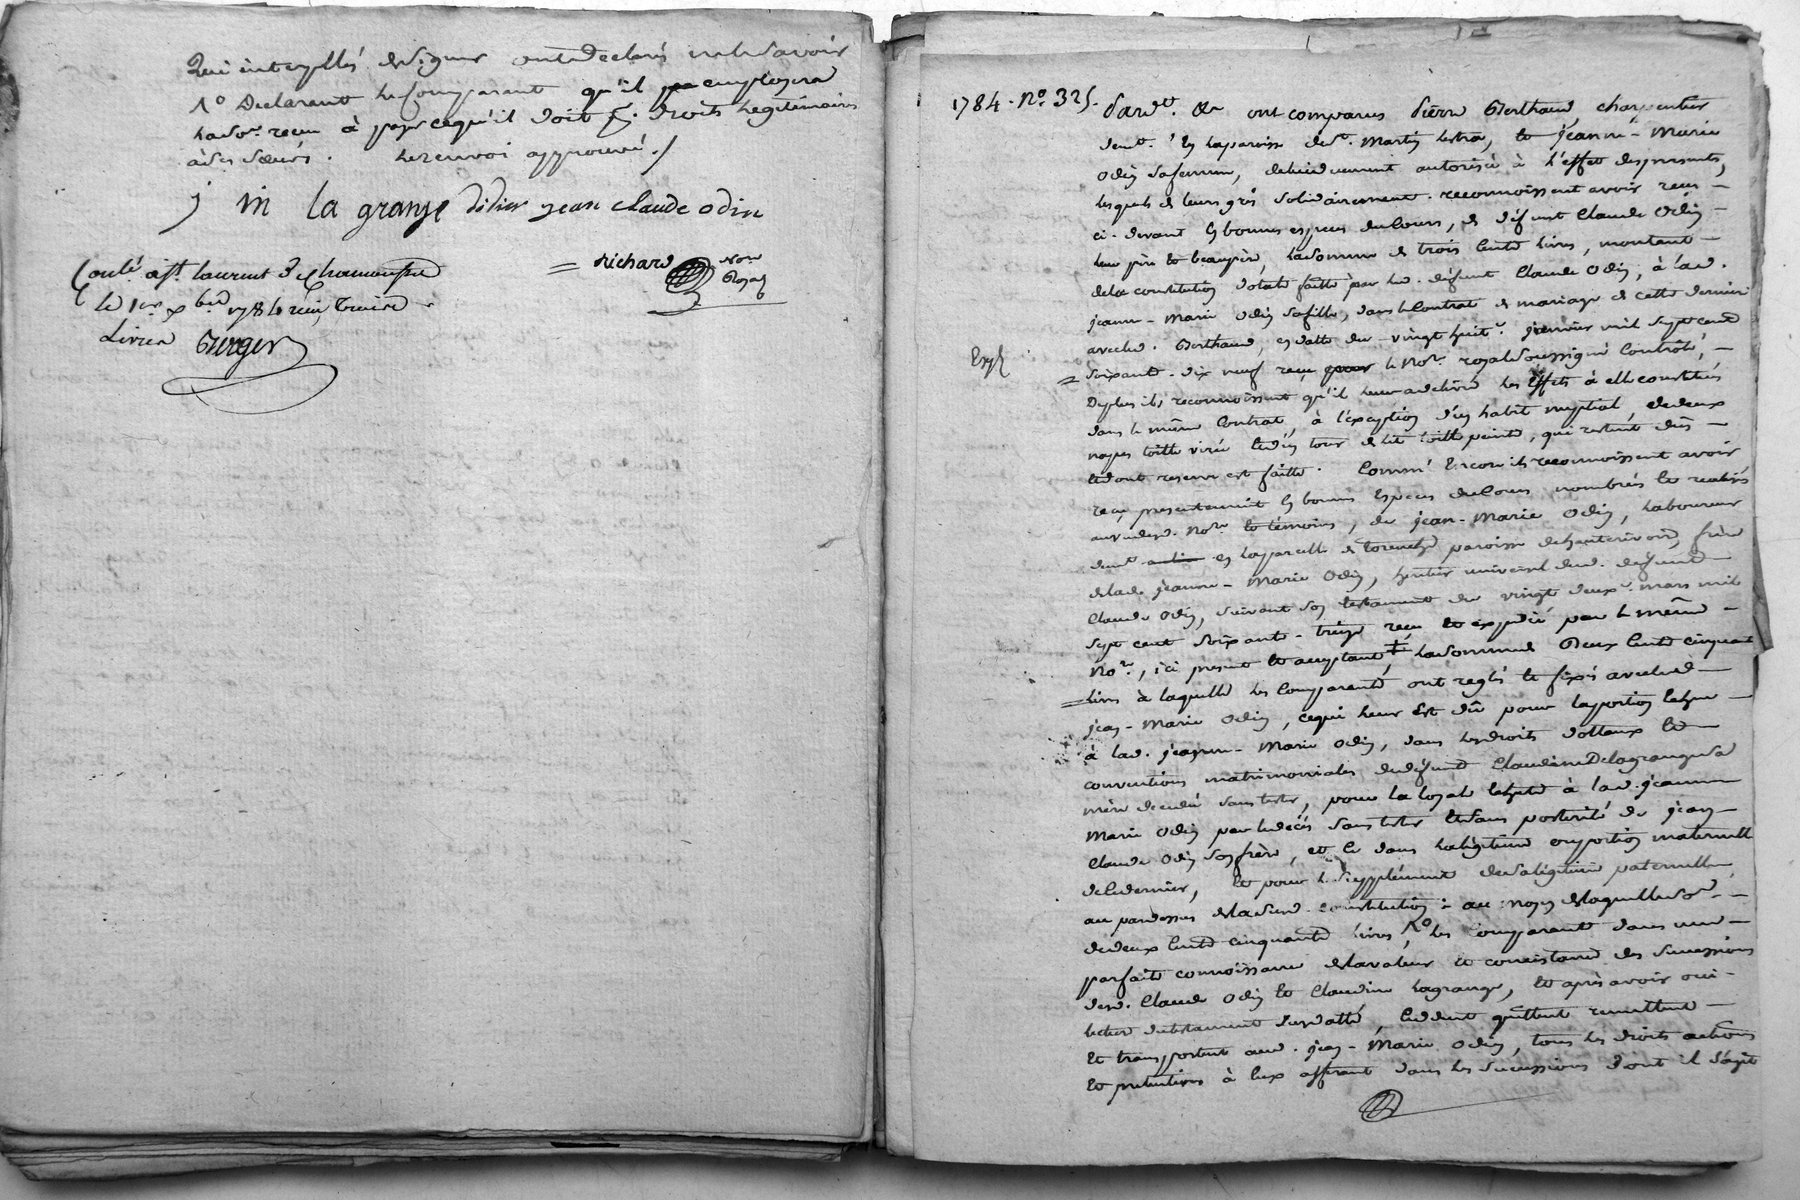 Qui interpellés de signer ont declarés ne le savoir
1° Declarant le Comparant qu'il employera
la somme recue à payer ce qu'il doit pr. droits legitimaires
à ses sœurs. le renvoi approuvé ./
j m la grange didier jean claude odin
Conlé à St. laurent de chamousset
le 1er xbre 1784 reçu treize
Livres Berger
= Richard Nore
Royal
1784. No. 325.
Pard.t &a ont comparus pierre Berthaud charpentier
demt. en la paroisse de St. Martin lestra, et jeanne-Marie
Odin sa femme, de lui duement autorisée à l'effet des presentes,
lesquels de leurs grés solidairement reconnoissent avoir reçu –
ci-devant en bonnes especes du Cours, de défunt Claude Odin –
leur père et beaupère, la somme de trois Cents livres, montant –
de la constitution dotale faitte par led. défunt Claude Odin, à lad.
jeanne-Marie Odin sa fille, dans le Contrat de mariage de cette dernière
avec led. Berthaud, en datte du vingt huit janvier mil sept cent
Expé
= soixante-dix neuf reçu le Nore royal soussigné Contrôlé, –
De plus ils reconnoissent qu'il leur a delivré les Effets à elle constitués
dans le même Contrat, à l'exception d'un habit nuptial, de deux
napes toille et d'un tour de lit toille peinte, qui restent dûs –
et dont reserve est faitte. Comm' Encore ils reconnoissent avoir
reçu presentement en bonnes Especes du Cours nombrés et realisés
au vu desd. Nore et témoins, de jean-Marie Odin, laboureur
demt en la parcelle de paroisse de hauterivoire, frère
de lade jeanne-Marie Odin, heritier universel dud. défunt –
Claude Odin, suivant son testament du vingt deux mars mil
sept cent soixante-treize reçu et expedié par le même –
Nore, ici present et acceptant, la somme de Deux Cents cinquante
= livres à laquelle les Comparants ont reglés et fixés avec led –
jean-Marie Odin, ce qui leur Est dû pour la portion
à lad. jeanne-Marie Odin, dans les droits dottaux et –
conventions matrimoniales de défunte Claudine Delagrange sa
mère decedée sans tester, pour la à lad. jeanne
Marie Odin par le decès sans tester et sans posterité de jean –
Claude Odin son frère, et ce dans la légitime et portion maternelle
de ce dernier, et pour le supplément de sa légitime paternelle,
au par dessus de la susd. constitution: au moyen de laquelle some –
de deux Cents cinquante livres, 1° les Comparants dans une –
parfaite connoissance de la valeur et consistance des successions
desd. Claude Odin et Claudine lagrange, et après avoir oui –
lecture du testament susdatté, cedent quittent remettent –
Et transportent aud. jean-Marie Odin, tous les droits actions
Et pretentions à Eux afferant dans les successions dont il s'agit